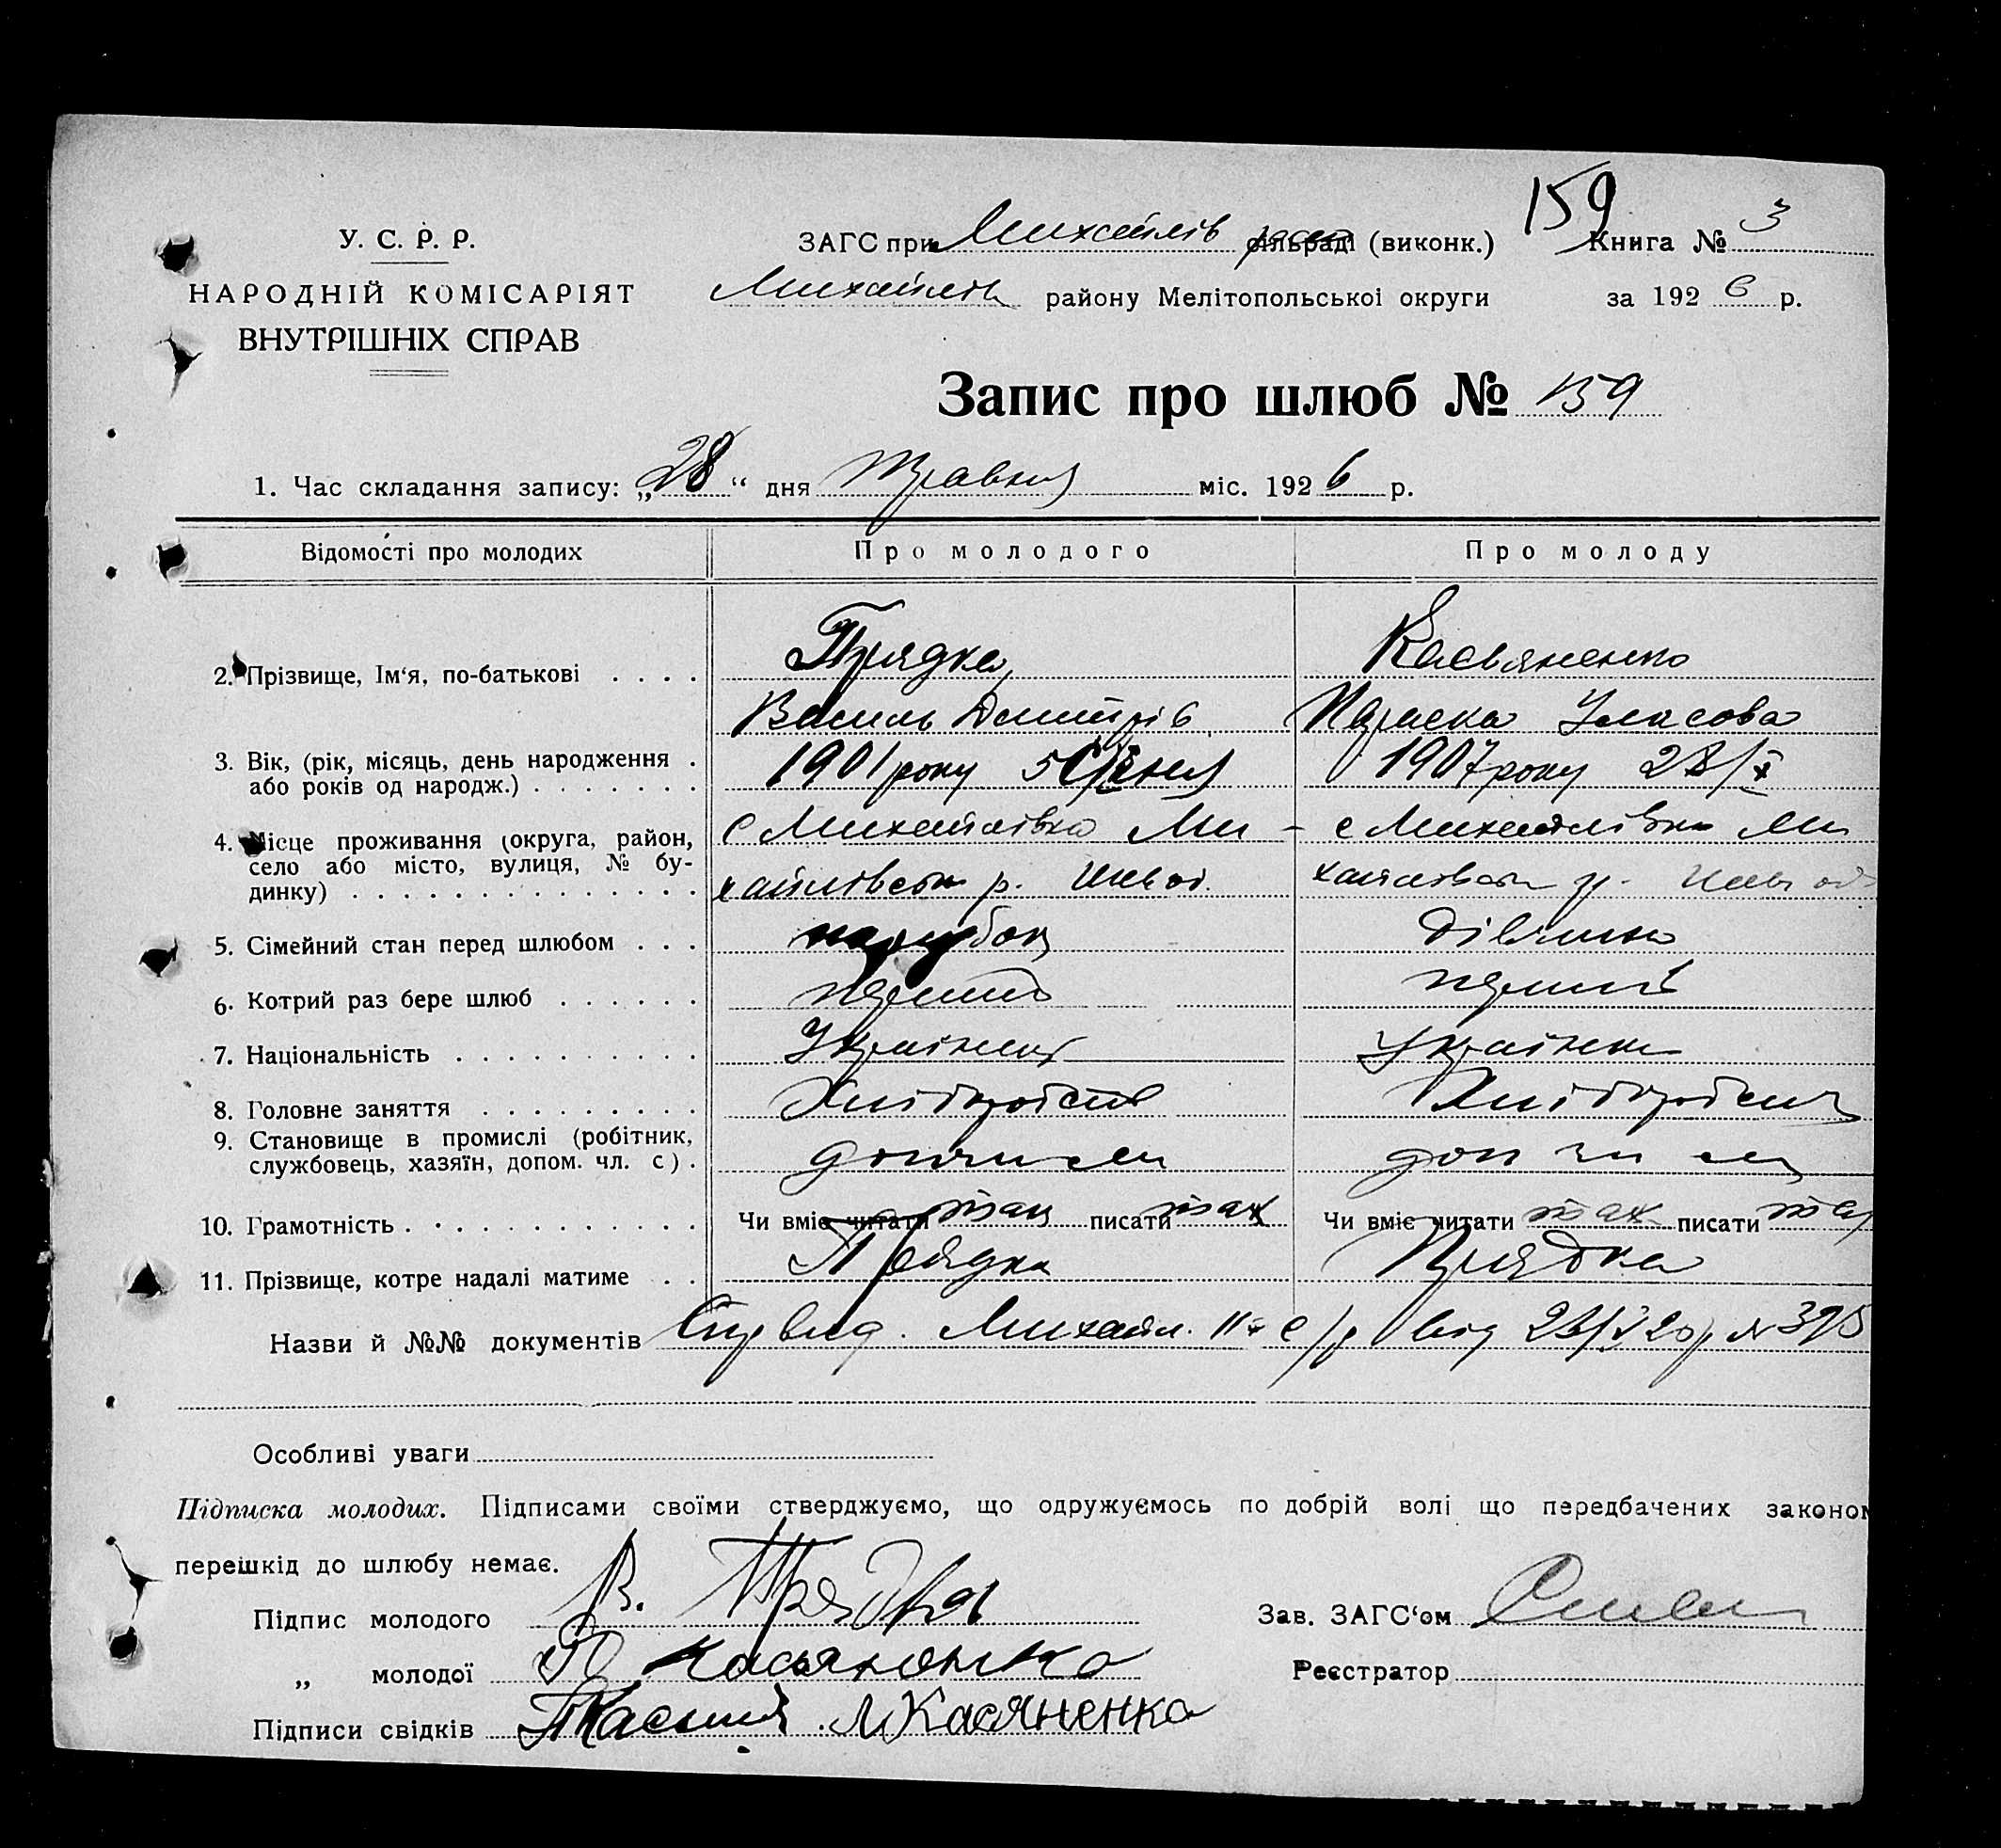 159
У. С. Р. Р.
НАРОДНІЙ КОМІСАРІЯТ
ВНУТРІШНІХ СПРАВ
ЗАГС при Михайлів сільраді (виконк.) Книга № 3
Михайлів району Мелітопольської округи за 1926 р.
Запис про шлюб № 159
1. Час складання запису: „28“ дня Травня міс. 1926 р.
Відомості про молодих Про молодого Про молоду
2. Прізвище, Ім‘я, по-батькові . . . . Прядка Касьяненко
Василь Дмитрів Параска Уласова
3. Вік, (рік, місяць, день народження . 1901 року 5 Січня 1907 року 28/X
або років од народж.) . . . . . . .
4. Місце проживання (округа, район, с Михайлівка Ми- с Михайлівка Ми
село або місто, вулиця, № бу- хайлівськ р. хайлівськ р.
динку) . . . . . . . . . . . . . .
5. Сімейний стан перед шлюбом . . . парубок дівчина
6. Котрий раз бере шлюб . . . . . . перший перший
7. Національність . . . . . . . . . . Українець Українка
8. Головне заняття . . . . . . . . . Хліборобств Хлібороб
9. Становище в промислі (робітник,
службовець, хазяїн, допом. чл. с) . доп чл см доп чл см
10. Грамотність . . . . . . . . . . . . Чи вміє читати так писати так Чи вміє читати так писати так
11. Прізвище, котре надалі матиме . . Прядка Прядка
Назви й №№ документів Михайл. с/р від
Особливі уваги
Підписка молодих. Підписами своїми стверджуємо, що одружуємось по добрій волі що передбачених законом
перешкід до шлюбу немає.
Підпис молодого В. Прядка Зав. ЗАГС‘ом
„ молодої П Касяненка Реєстратор
Підписи свідків Касяненка